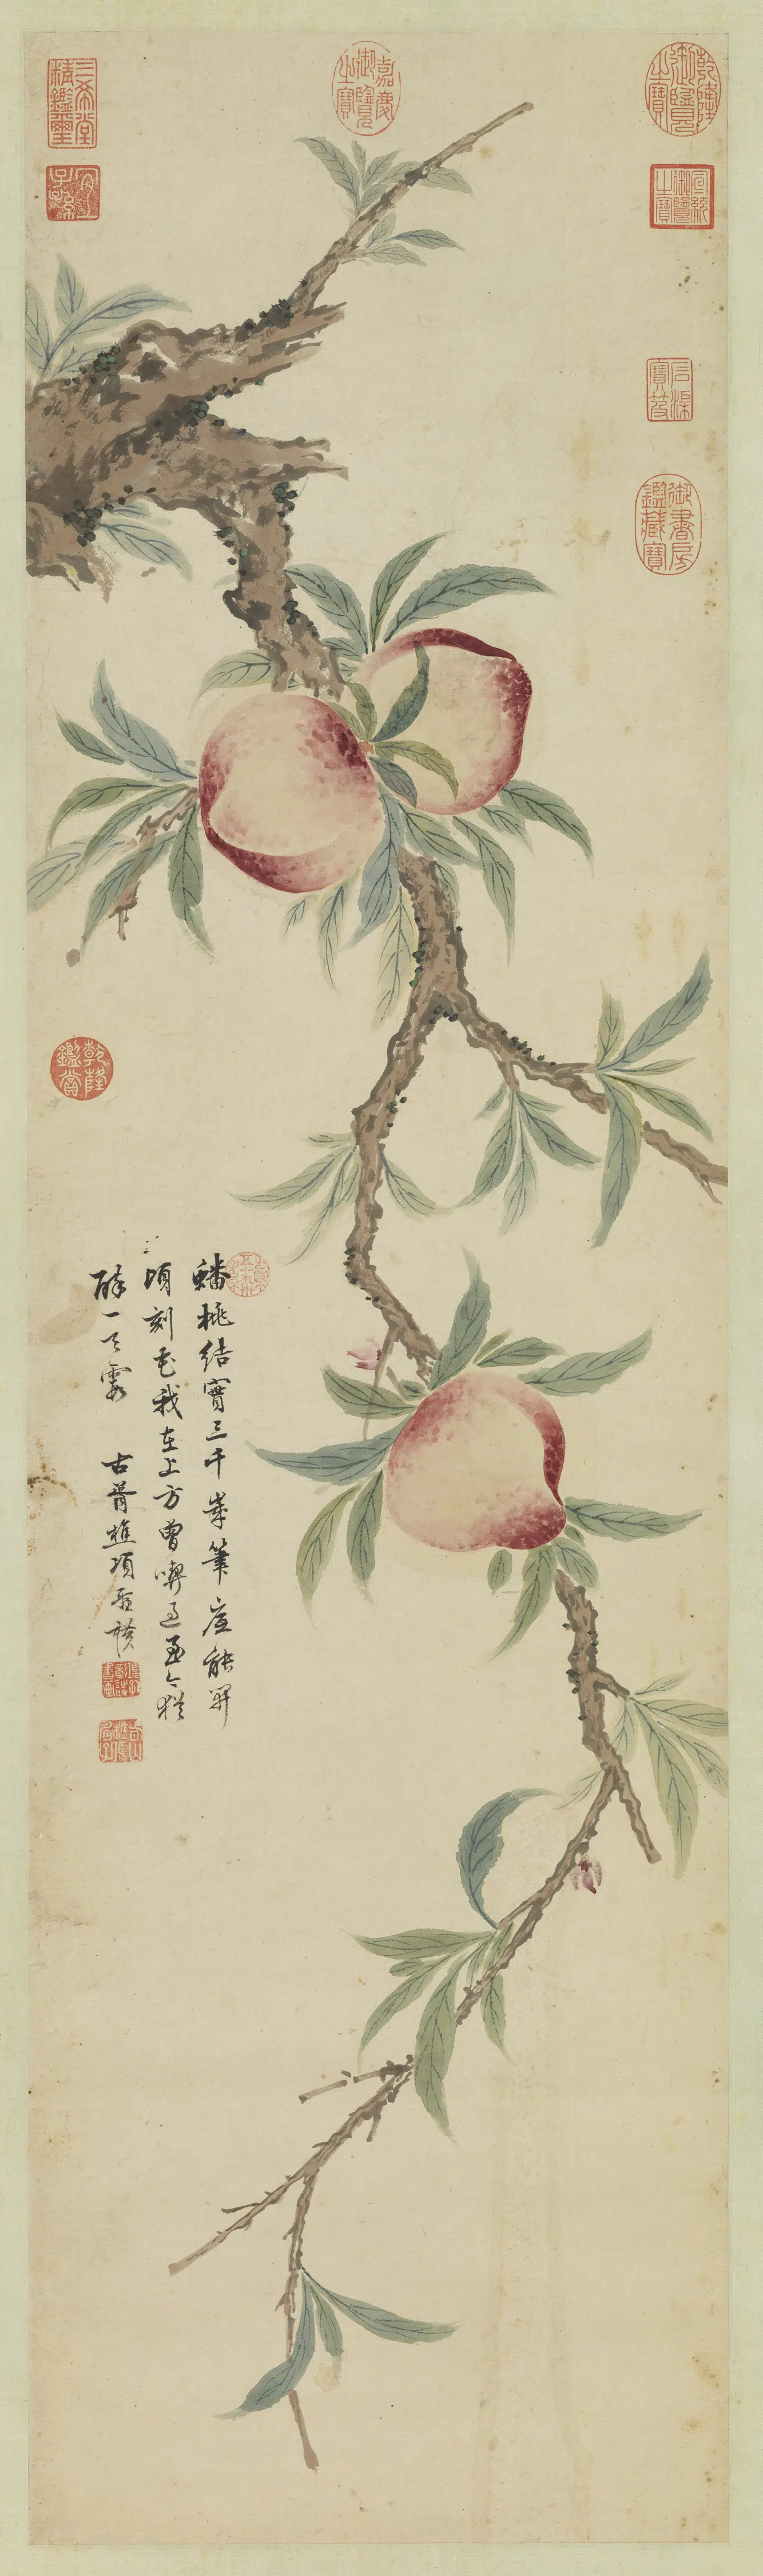 乾隆御覽之寶
宣統御覽之寶
石渠寶笈
御書房鑑藏寶
嘉慶御覽之寶
三希堂精鑑璽
宜子孫
乾隆鑑賞
蟠桃結實三千歲筆底能開
頃刻花我在上方曾喫過至今猶
醉一天霞 古胥樵項聖謨